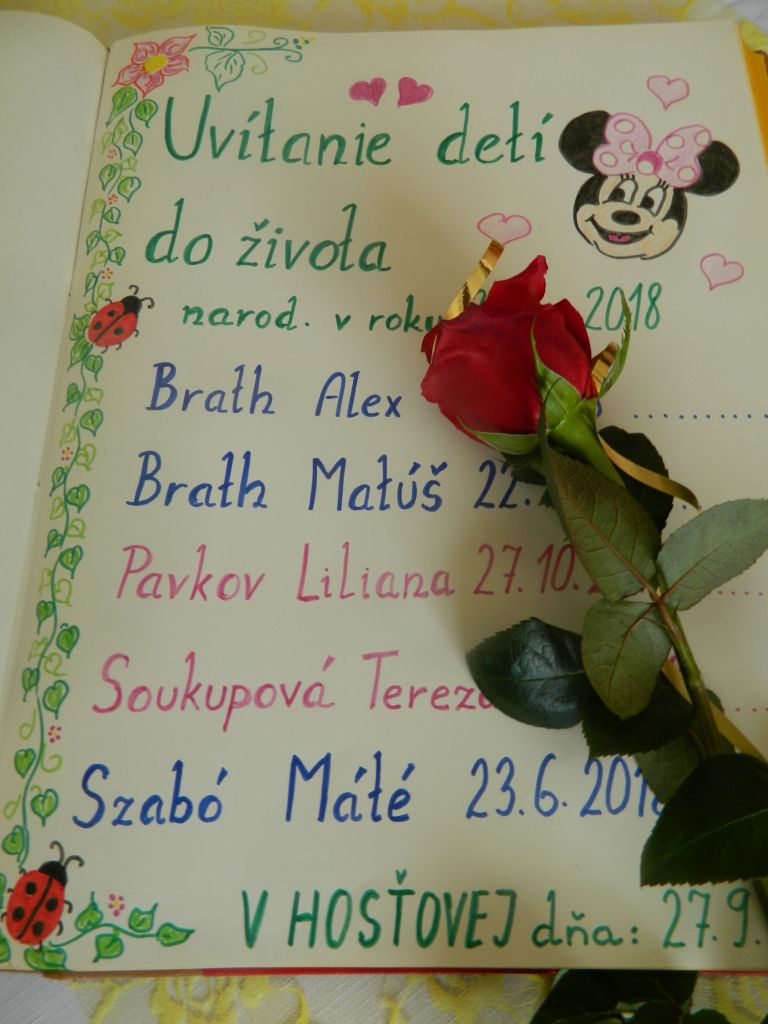 Uvítanie detí
do života
narod. v roku 2018
Brath Alex
Brath Matúš 22.
Pavkov Liliana 27.10.
Soukupová Tereza
Szabó Máté 23.6.2018
V HOSŤOVEJ dňa: 27.9.